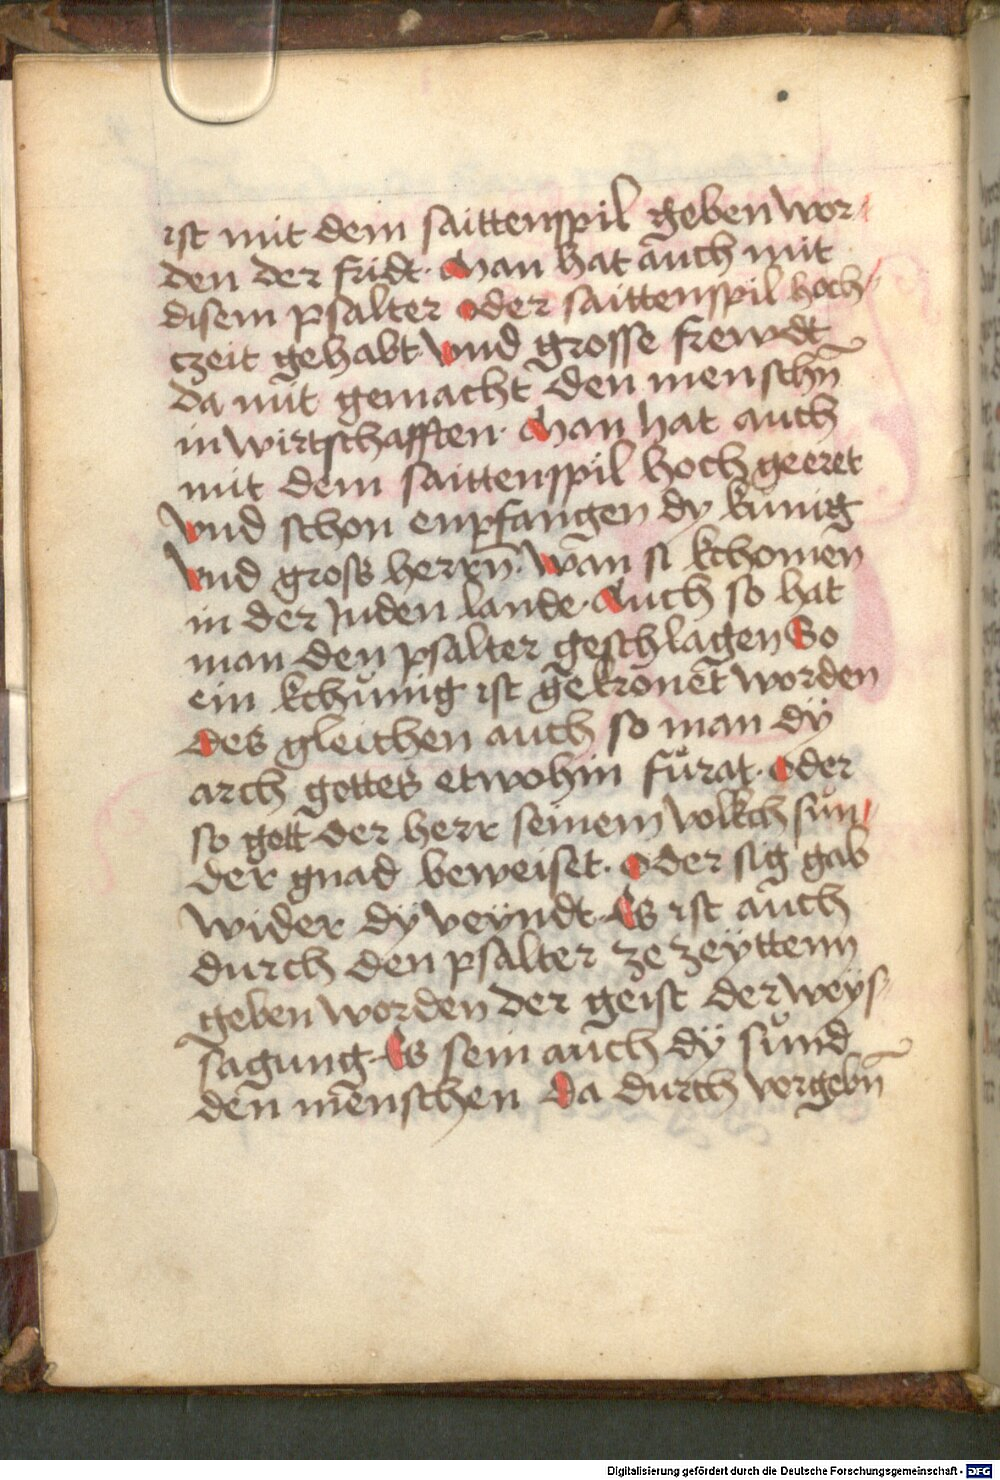 ist mit dem saittenspil geben wor/
den der fridt. Man hat auch mit
disem psalter oder saittenspil hoch/
czeit gehabt vnd grosse frewdt
da mit gemacht den menschn̄
in wirtschafften. Man hat auch
mit dem saittenspil hoch geeret
vnd schon enpfangen dy kunig
vnd gross herrn̄. wan si kchomen
in der Juden lande. Auch so hat
man den psalter geschlagen So
ein kchünig ist gekronet worden
des gleichen auch so man dÿ
arch gottes etwohin fůrat. oder
so gott der herr seinem volkch sun/
der gnad beweiset. oder sig gab
wider dÿ veÿndt. Es ist auch
durch den psalter ze zeÿttenn
geben worden der geist der weÿs/
sagung. Es sein auch dÿ sůnd
den menschen da durch vorgebn̄
Digitalisierung gefördert durch die Deutsche Forschungsgemeinschaft - DFG